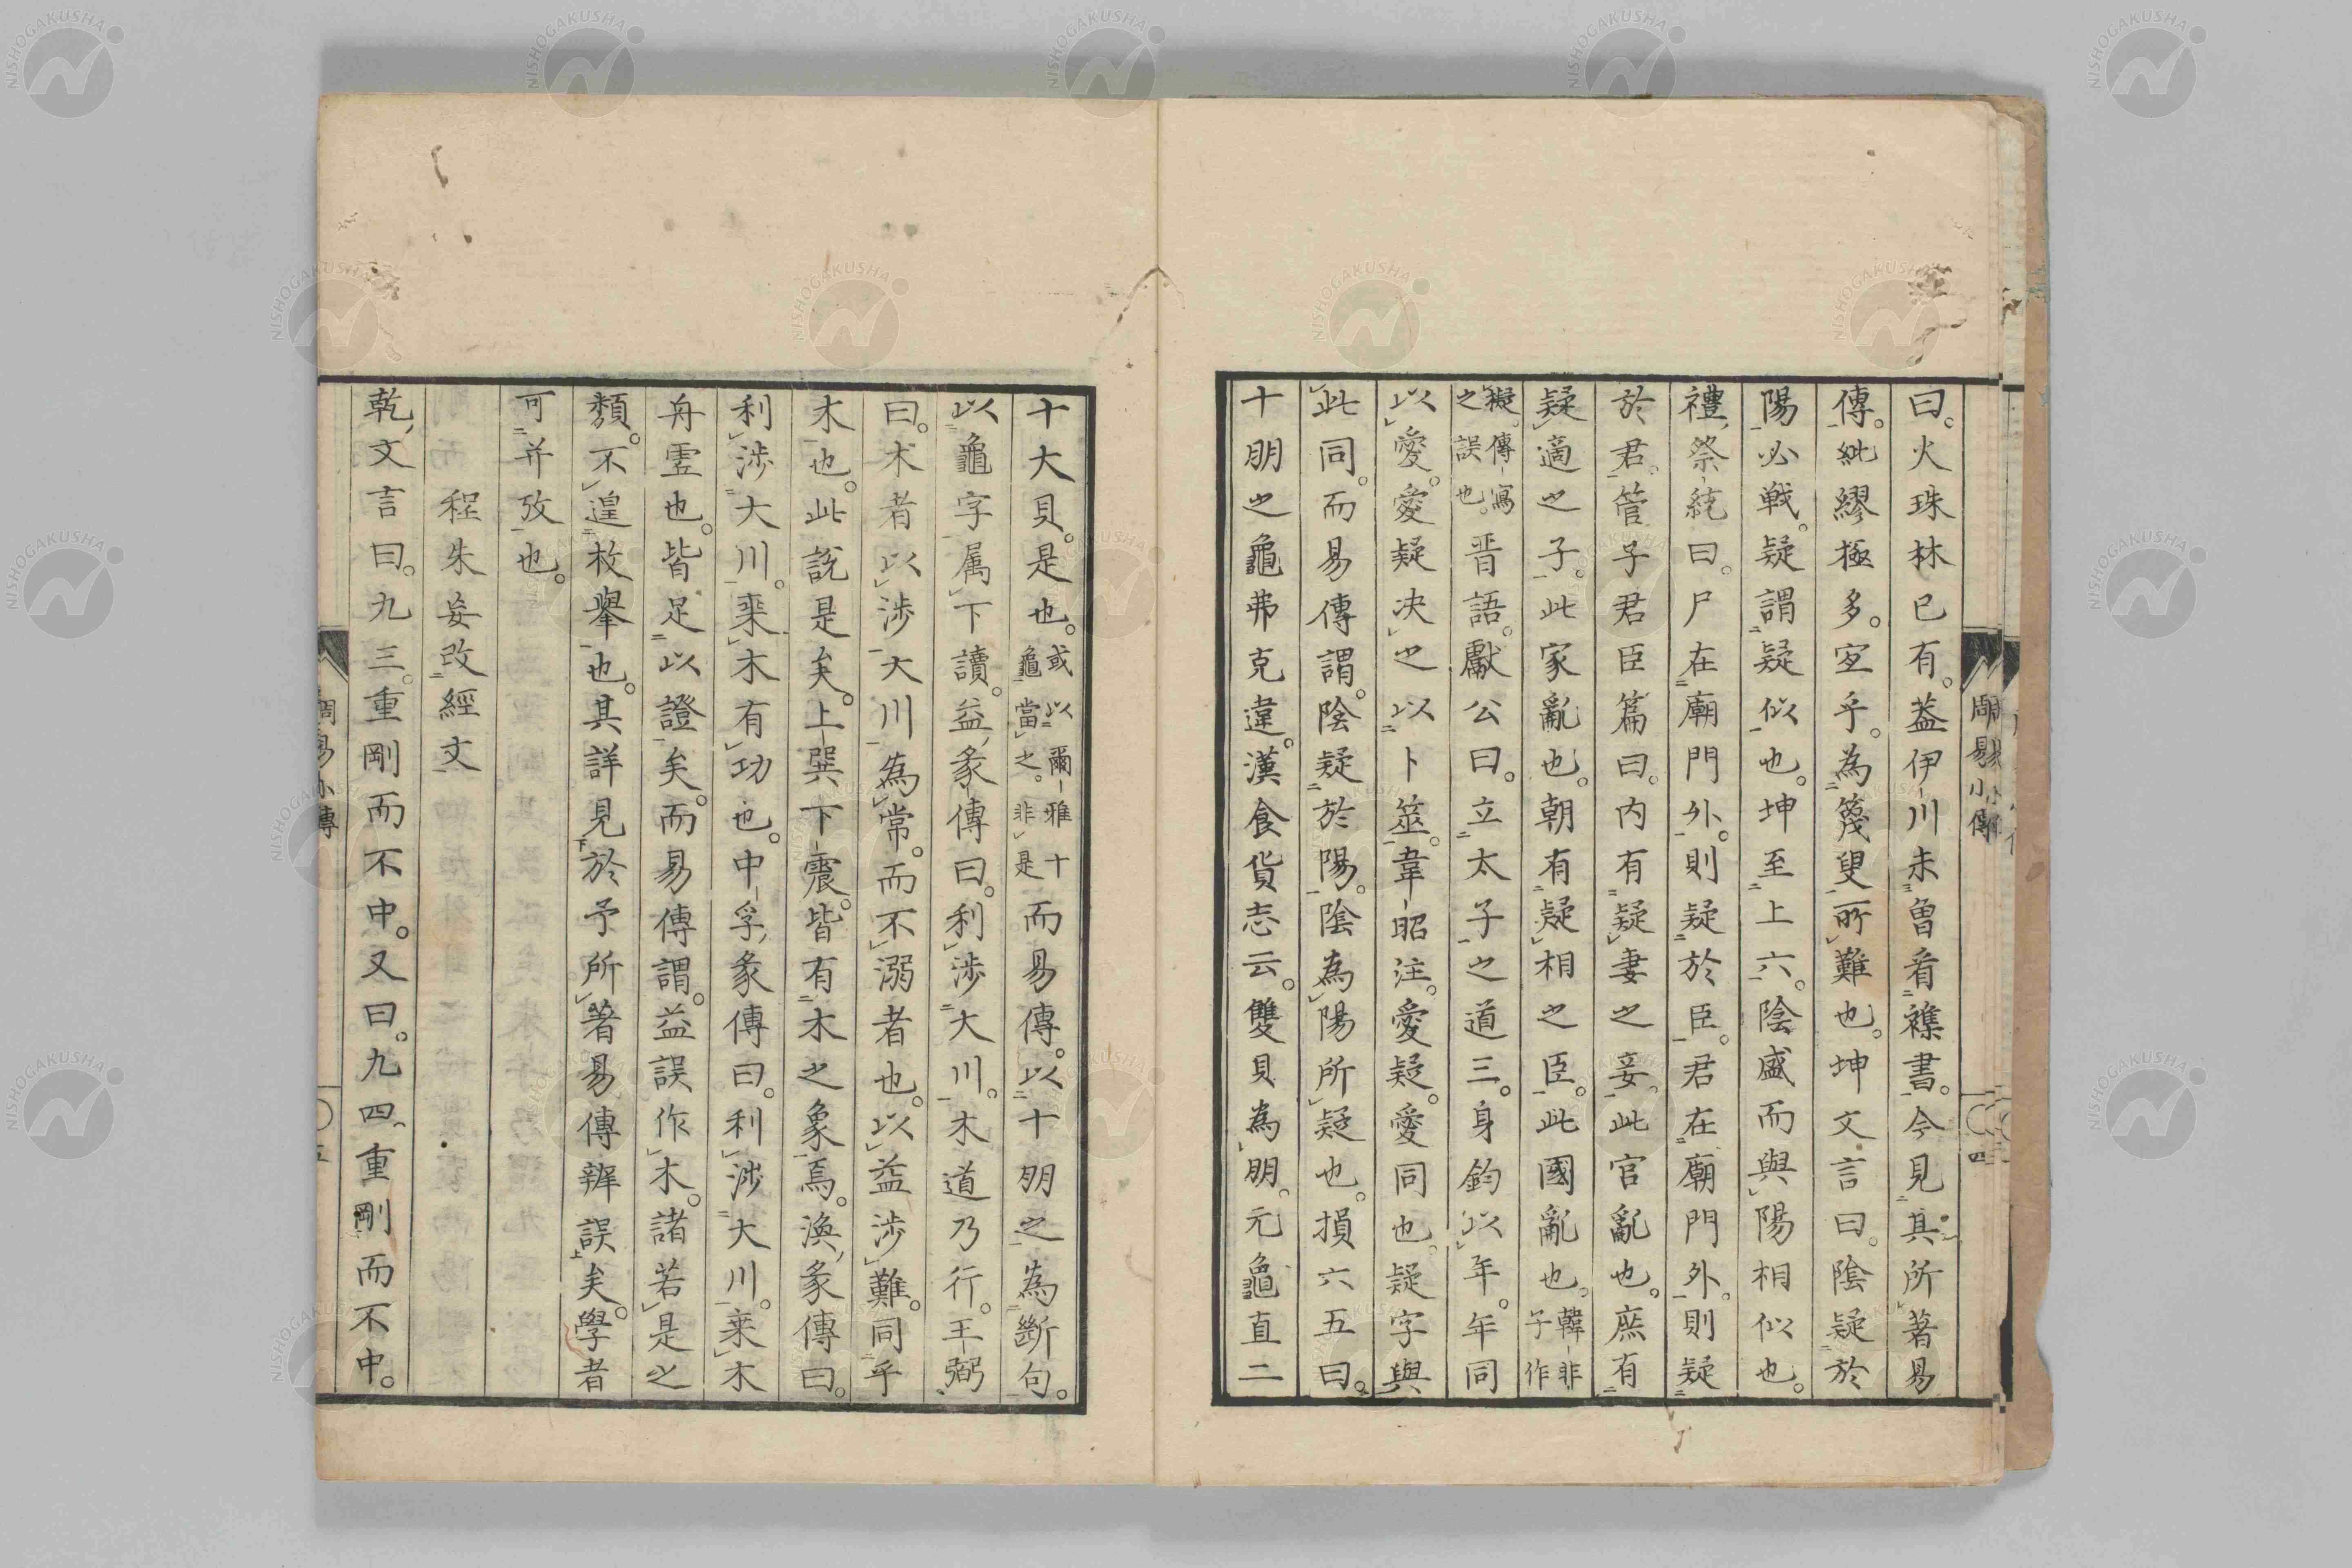 曰。火珠林已有。蓋伊川未曽看襍書。今見其所著易
傳。紕繆極多。宜乎。為篾叟所難也。坤文言曰。陰疑於
陽必戦。疑謂疑似也。坤至上六。陰盛而與陽相似也。
禮祭統曰。尸在廟門外。則疑於臣。君在廟門外。則疑
於君。管子君臣篇曰。内有疑妻之妾。此官亂也。庶有
疑適之子。此家亂也。朝有疑相之臣。此國亂也。韓非子作
擬。傳寫之誤也。晋語。獻公曰。立太子之道三。身鈞以年。年同
以愛。愛疑决之以卜筮。韋昭注。愛疑。愛同也。疑字與
此同。而易傳謂。陰疑於陽。陰為陽所疑也。損六五曰。
十朋之龜弗克違。漢食貨志云。雙貝為朋。元龜直二
周易小傳
四
十大貝。是也。或以爾雅十龜當之。非是而易傳。以十朋之為斷句。
以龜字属下讀。益彖傳曰。利渉大川。木道乃行。王弼
曰。木者以渉大川為常。而不溺者也。以益渉難。同乎
木也。此説是矣。上巽下震。皆有木之象焉。渙彖傳曰。
利渉大川。乗木有功也。中孚彖傳曰。利渉大川。乗木
舟虚也。皆足以證矣。而易傳謂。益誤作木。諸若是之
類。不遑枚擧也。其詳見於予所著易傳辨誤矣。學者
可并攷也。
程朱妄改經文
乾文言曰。九三。重剛而不中。又曰。九四重剛而不中。
周易小傳
五